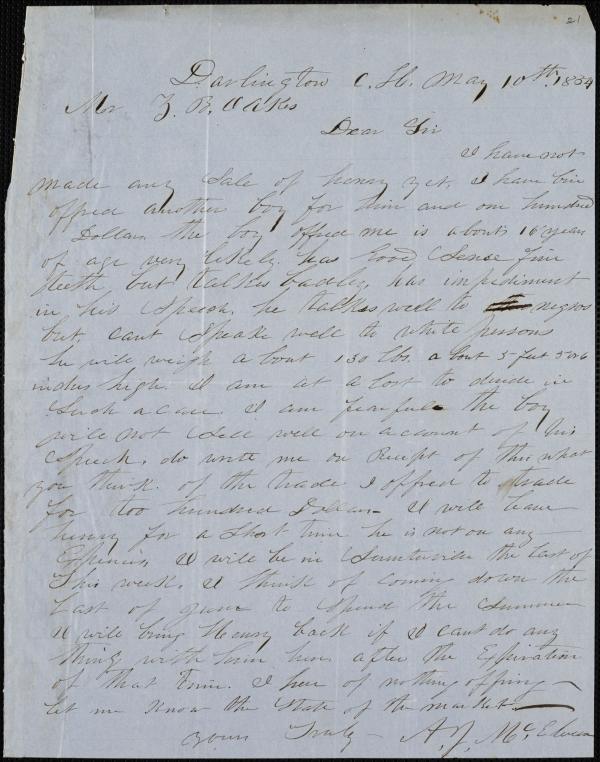 21
Darlington C. H. May 10th 1854
Mr Z. B. Oakes
Dear Sir
I have not
made any Sale of henry yet, I have bin
offred another boy for him and one hundred
Dollars the boy offred me is about 16 years
of age very likely has Good Sense fine
teeth but talkes badley, has impediment
in his Speech, he talkes well to negros
but, cant Speake well to white persons
he will weigh about 130 lbs. about 5 feet 5 or 6
inches high. I am at a lost to decide in
Such a case. I am fearfull the boy
will not Sell well on account of his
Speech, do write me on Receipt of this what
you think of the trade I offred to trade
for too hundred Dollars I will leave
henry for a Short time he is not on any
Expencis I will be in Sumterville the last of
This week. I think of coming down the
Last of June to Spend the Summer
will bring Henry back if I cant do any
thing with him here after the Expiration
of that time. I hear of nothing offring
let me know the State of the market
yours Truly A. J. McElveen